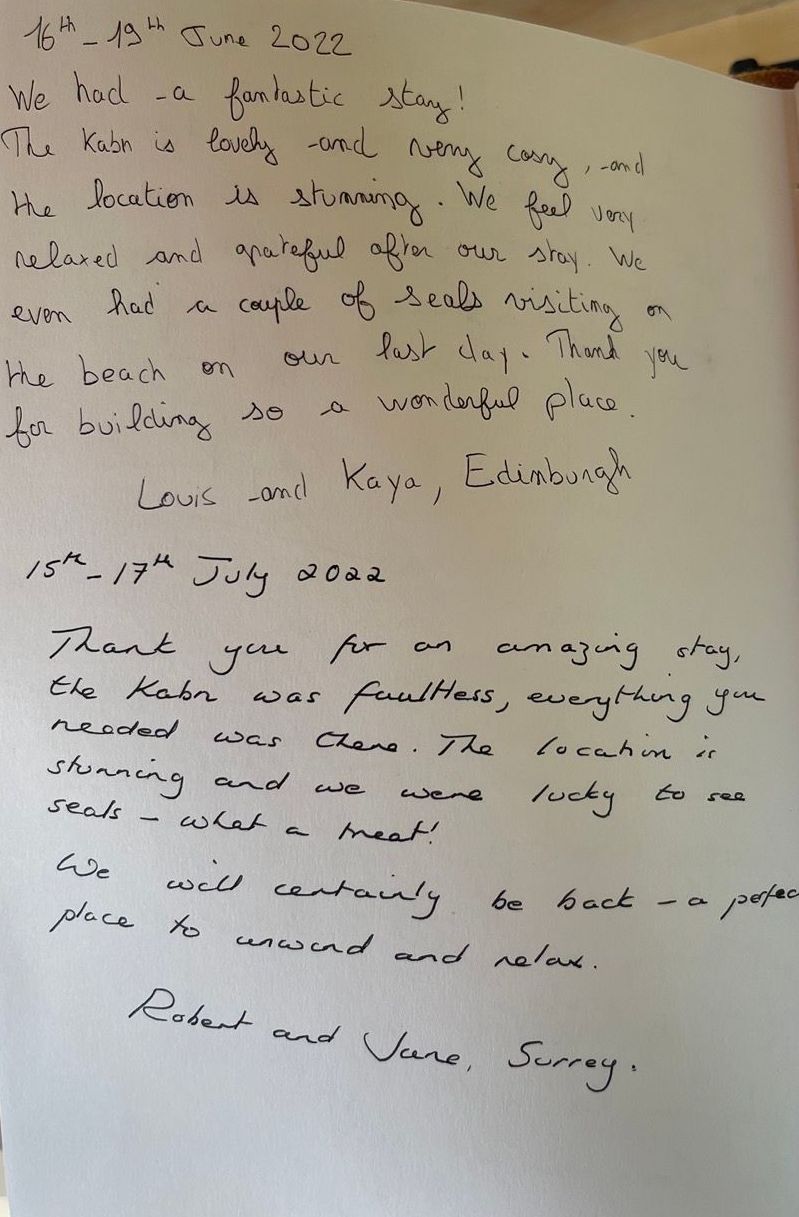 16th - 19th June 2022
We had a fantastic stay!
The Kabn is lovely and very cosy, and
the location is stunning. We feel very
relaxed and grateful after our stay. We
even had a couple of seals visiting on
the beach on our last day. Thank you
for building so a wonderful place.
Louis and Kaya, Edinburgh
15th - 17th July 2022
Thank you for an amazing stay,
the Kabn was faultless, everything you
needed was there. The location is
stunning and we were lucky to see
seals - what a treat!
We will certainly be back - a perfec
place to unwind and relax.
Robert and Jane, Surrey.